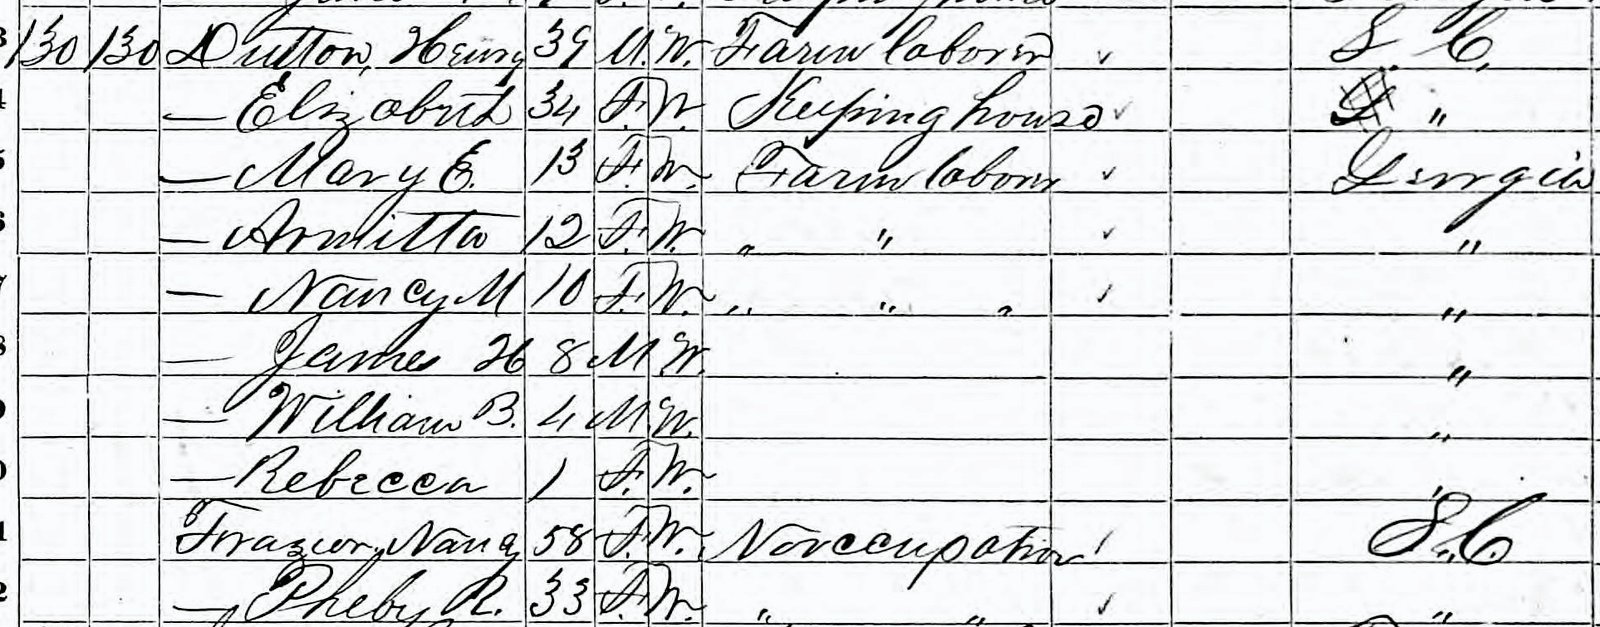 130 130 Dutton, Henry 39 M. W. Farm laborer ✓ S. C.
— Elizabeth 34 F. W. Keeping house ✓ "
— Mary E. 13 F. W. Farm laborer ✓ Georgia
— Armitta 12 F. W. " " ✓ "
— Nancy M 10 F. W. " " " ✓ "
— James H 8 M W. "
— William B. 4 M W. "
— Rebecca 1 F. W. "
Frazier, Nancy 58 F. W. No occupation ✓ S. C.
— Pheby R. 33 F. W. " " ✓ "